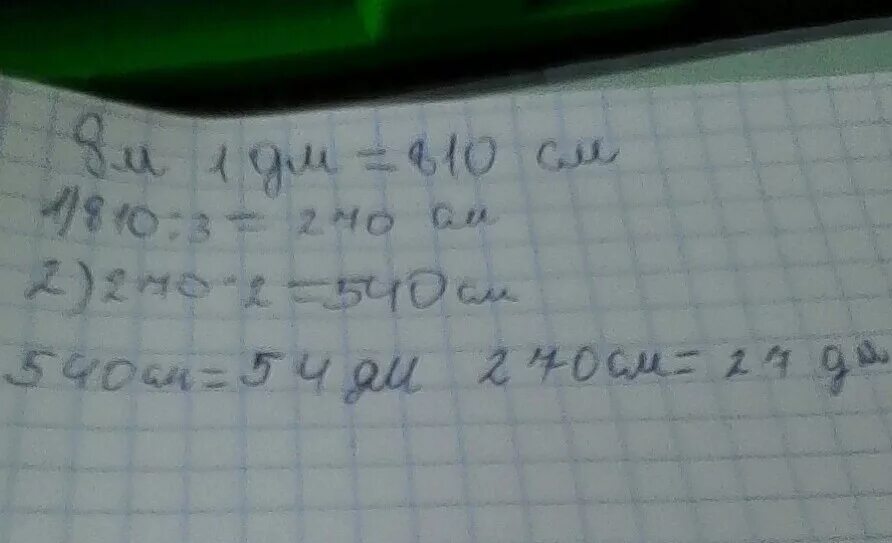 8м 1 дм = 810 см
1) 810 : 3 = 270 см
2) 270 · 2 = 540 см
540 см = 54 дм 270 см = 27 дм